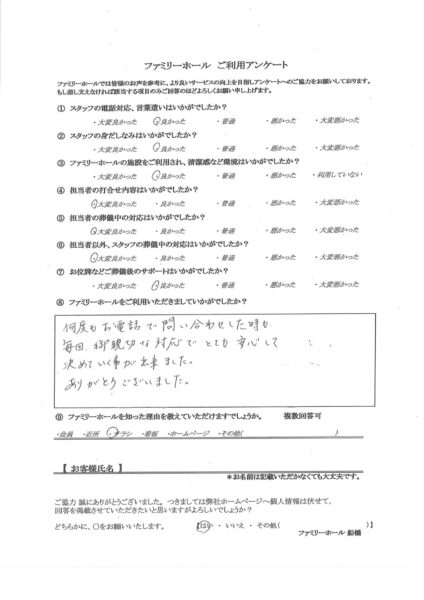 ファミリーホール ご利用アンケート
ファミリーホールでは皆様のお声を参考に、より良いサービスの向上を目指しアンケートへのご協力をお願いしております。
もし差し支えなければ該当する項目のみご回答のほどよろしくお願い申し上げます。
① スタッフの電話対応、言葉遣いはいかがでしたか？
・大変良かった ・良かった ・普通 ・悪かった ・大変悪かった
② スタッフの身だしなみはいかがでしたか？
・大変良かった ・良かった ・普通 ・悪かった ・大変悪かった
③ ファミリーホールの施設をご利用され、清潔感など環境はいかがでしたか？
・大変良かった ・良かった ・普通 ・悪かった ・利用していない
④ 担当者の打合せ内容はいかがでしたか？
・大変良かった ・良かった ・普通 ・悪かった ・大変悪かった
⑤ 担当者の葬儀中の対応はいかがでしたか？
・大変良かった ・良かった ・普通 ・悪かった ・大変悪かった
⑥ 担当者以外、スタッフの葬儀中の対応はいかがでしたか？
・大変良かった ・良かった ・普通 ・悪かった ・大変悪かった
⑦ お位牌などご葬儀後のサポートはいかがでしたか？
・大変良かった ・良かった ・普通 ・悪かった ・大変悪かった
⑧ ファミリーホールをご利用いただきましていかがでしたか？
何度もお電話で問い合わせした時も
毎回、御親切な対応でとても安心して
決めていく事が出来ました。
ありがとうございました。
⑨ ファミリーホールを知った理由を教えていただけますでしょうか。 複数回答可
・会員 ・近所 ・チラシ ・看板 ・ホームページ ・その他( )
【 お客様氏名 】
*お名前は記載いただかなくても大丈夫です。
ご協力 誠にありがとうございました。つきましては弊社ホームページへ個人情報は伏せて、
回答を掲載させていただきたいと思いますがよろしいでしょうか？
どちらかに、〇をお願いいたします。 【はい ・ いいえ ・ その他( )】
ファミリーホール 船橋